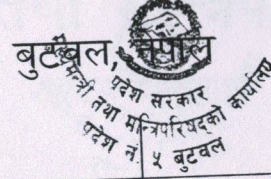 बुटवल, नेपाल
प्रदेश सरकार
मुख्यमन्त्री तथा मन्त्रिपरिषदको कार्यालय
प्रदेश नं. ५ बुटवल